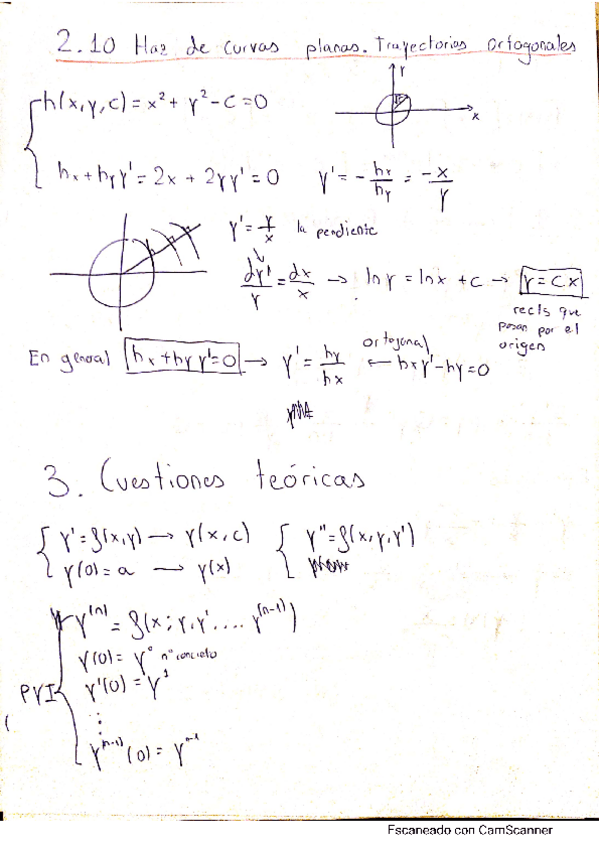 2.10 Haz de curvas planas. Trayectorias ortogonales
h(x,y,c) = x² + y² - c = 0
Y
x
hx + hy y' = 2x + 2yy' = 0 y' = - hx/hy = -x/y
y' = y/x la pendiente
dy/y = dx/x → ln y = ln x + c → y = cx
rects que
pasan por el
origen
En general hx + hy y' = 0 → y' = hy/hx ortogonal ← hx y' - hy = 0
3. Cuestiones teóricas
y' = f(x,y) → y(x,c) y'' = f(x,y,y')
y(0) = a → y(x)
y^(n) = f(x; y, y' .... y^(n-1))
y(0) = y° nº concreto
PVI y'(0) = y¹
⋮
y^(n-1)(0) = y^n-1
Escaneado con CamScanner